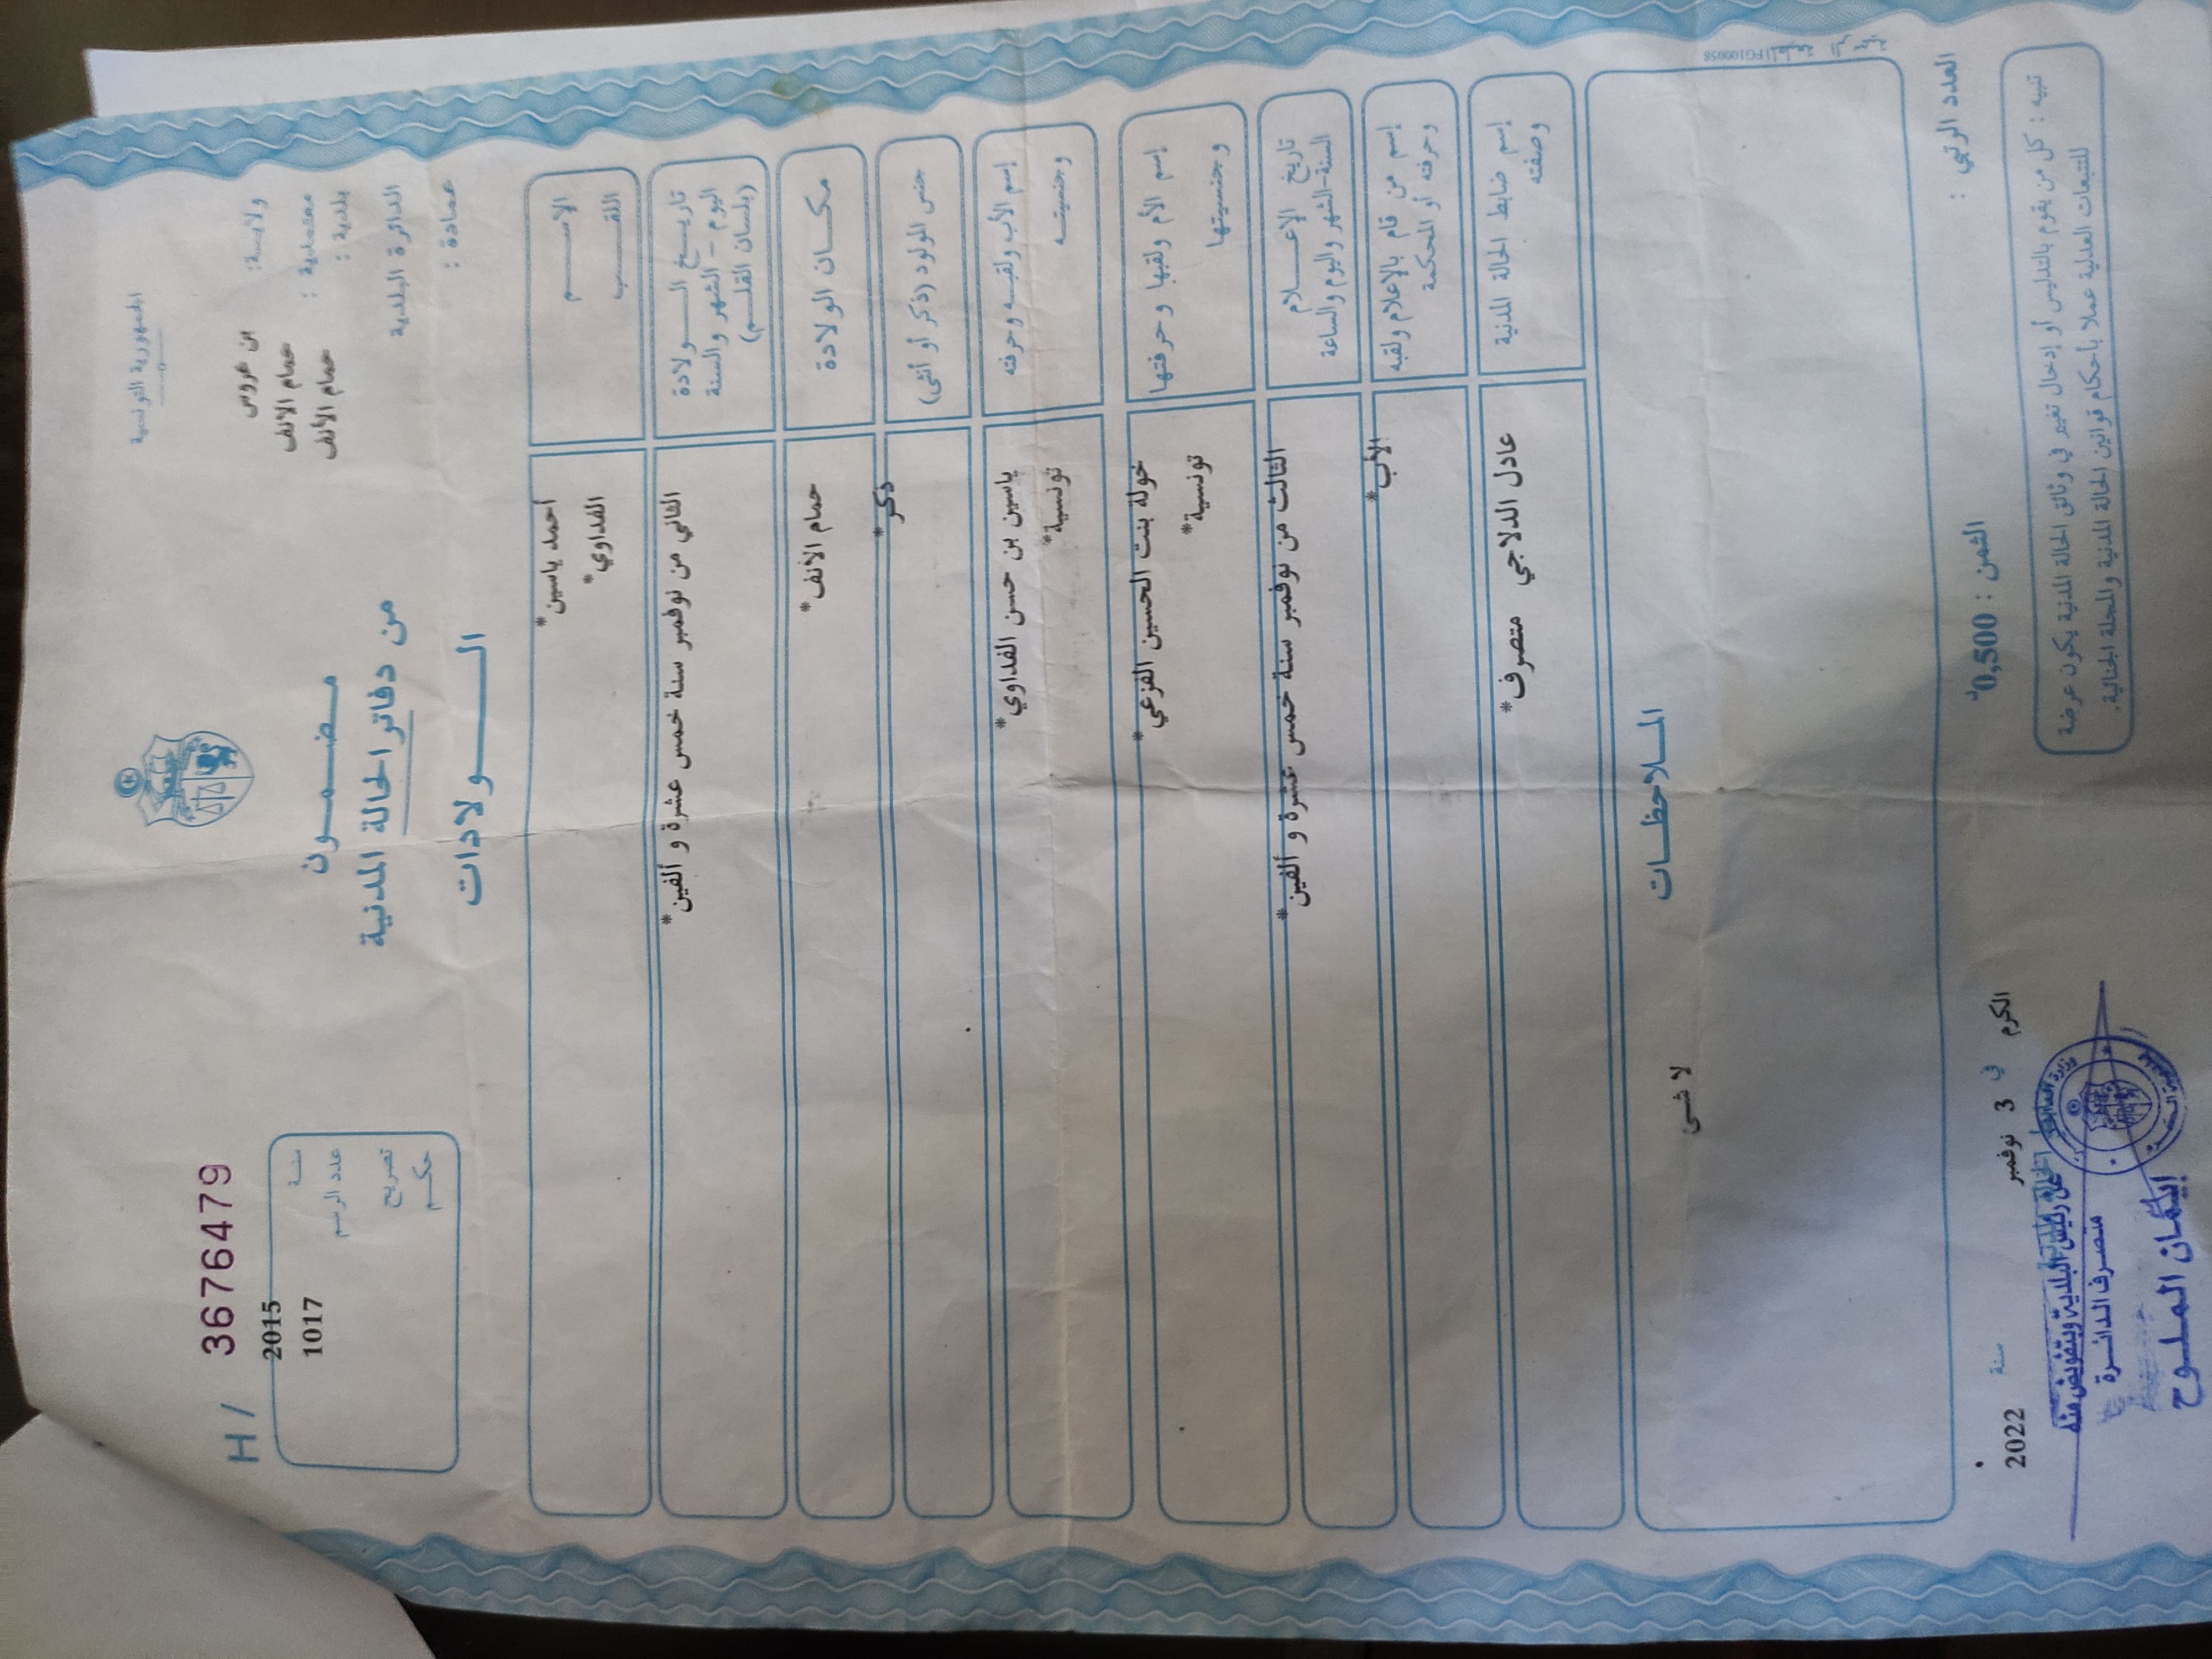 الجمهورية التونسية
ولايــة: بن عروس
معتمدية : حمام الانف
بلدية : حمام الانف
الدائرة البلدية
عمادة :
H / 3676479
سنــة 2015
عدد الرسم 1017
تصريح
حكــم
مـضـمـــون
من دفاتر الحالة المدنية
الــــــولادات
الاســــم أحمد ياسين*
اللقـــــب الفداوي*
تاريــــخ الـــــولادة
اليوم - الشهر والسنة
(بلسان القلـــم)
الثاني من نوفمبر سنة خمس عشرة و ألفين*
مكـــان الولادة حمام الانف*
جنس المولود (ذكر أو أنثى) ذكر*
إسم الأب ولقبـه وحرفته ياسين بن حسن الفداوي*
وجنسيتـــه تونسية*
إسم الأم ولقبها وحرفتها خولة بنت الحسين الفزعي*
وجنسيتها تونسية*
تاريخ الإعــــلام
السنة-الشهر واليوم والساعة
الثالث من نوفمبر سنة خمس عشرة و ألفين*
إسم من قام بالإعلام ولقبه
وحرفته أو المحكمة
الأب*
إسم ضابط الحالة المدنية
وصفته
عادل الدلاجي متصرف*
المـــلاحظـــات
لا شىء
العدد الرتبي :
الثمن : 0,500د
الكرم في 3 نوفمبر سنة 2022
تنبيه : كل من يقوم بالتدليس أو إدخال تغيير في وثائق الحالة المدنية يكون عرضة
للتتبعات العدلية عملا بأحكام قوانين الحالة المدنية والمجلة الجنائية.
عن رئيس البلدية وبتفويض منه
متصرف الدائرة
إيمان الملوح